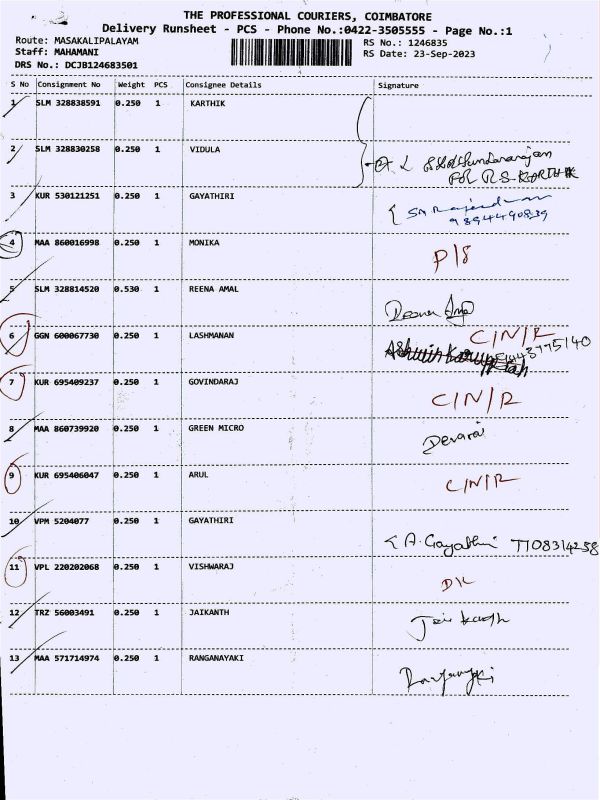 THE PROFESSIONAL COURIERS, COIMBATORE
Delivery Runsheet - PCS - Phone No.:0422-3505555 - Page No.:1
Route: MASAKALIPALAYAM
Staff: MAHAMANI
DRS No.: DCJB124683501
RS No.: 1246835
RS Date: 23-Sep-2023
S No Consignment No Weight PCS Consignee Details Signature
1 SLM 328838591 0.250 1 KARTHIK
2 SLM 328830258 0.250 1 VIDULA
FOR R.S. KARTHIK
3 KUR 530121251 0.250 1 GAYATHIRI
9894490839
4 MAA 860016998 0.250 1 MONIKA P/S
5 SLM 328814520 0.530 1 REENA AMAL
6 GGN 600067730 0.250 1 LASHMANAN C/N/R
7 KUR 695409237 0.250 1 GOVINDARAJ C/N/R
8 MAA 860739920 0.250 1 GREEN MICRO Devaraj
9 KUR 695406047 0.250 1 ARUL C/N/R
10 VPM 5204077 0.250 1 GAYATHIRI
A. Gayathri 7708314258
11 VPL 220202068 0.250 1 VISHWARAJ D/L
12 TRZ 56003491 0.250 1 JAIKANTH
13 MAA 571714974 0.250 1 RANGANAYAKI